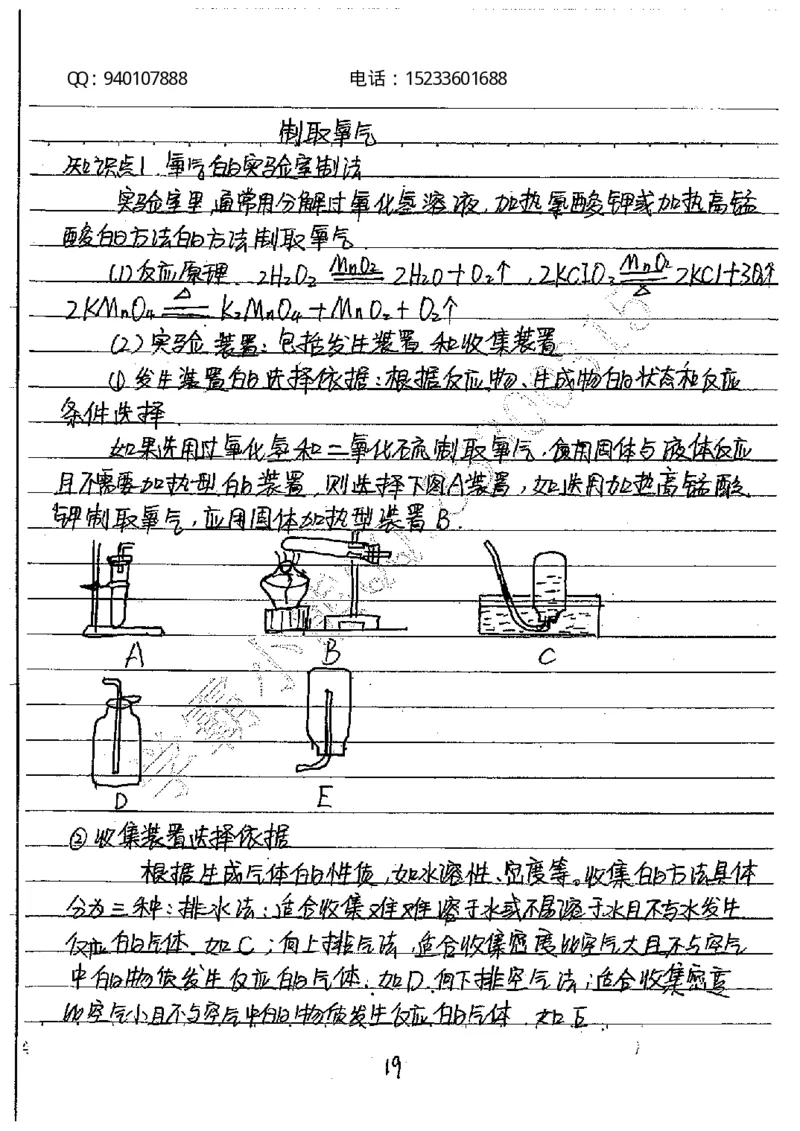 QQ: 940107888 电话：15233601688
制取氧气
知识点1 氧气的实验室制法
实验室里,通常用分解过氧化氢溶液,加热氯酸钾或加热高锰
酸的方法的方法制取氧气.
(1)反应原理. 2H₂O₂ MnO₂ 2H₂O+O₂↑, 2KClO₃ MnO₂ △ 2KCl+3O₂↑
2KMnO₄ △ K₂MnO₄+MnO₂+O₂↑
(2)实验装置:包括发生装置和收集装置
①发生装置的选择依据:根据反应物、生成物的状态和反应
条件选择.
如果选用过氧化氢和二氧化硫制取氧气,使用固体与液体反应
且不需要加热型的装置,则选择下图A装置,如选用加热高锰酸
钾制取氧气,应用固体加热型装置B.
A B C
D E
②收集装置选择依据
根据生成气体的性质,如水溶性、密度等。收集的方法具体
分为三种:排水法:适合收集难溶于水或不易溶于水且不与水发生
反应的气体.如C;向上排气法,适合收集密度比空气大且不与空气
中的物质发生反应的气体.如D.向下排空气法;适合收集密度
比空气小且不与空气中的物质发生反应的气体.如E.
19